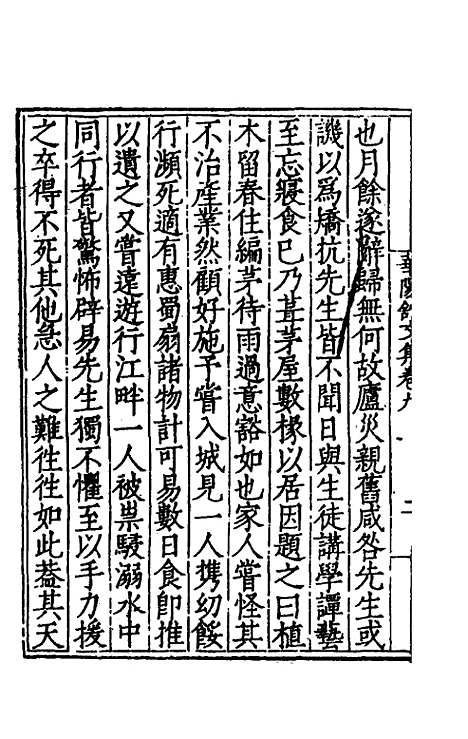 也月餘遂辭歸無何故廬災親舊咸咎先生或
譏以爲矯抗先生皆不聞日與生徒講學譚藝
至忘寢食已乃葺茅屋數椽以居因題之曰植
木留春住編茅待雨過意豁如也家人嘗怪其
不治産業然顧好施予嘗入城見一人携幼餒
行瀕死適有惠蜀扇諸物計可易數日食即推
以遺之又嘗遠遊行江畔一人被祟駸溺水中
同行者皆驚怖辟易先生獨不懼至以手力援
之卒得不死其他急人之難往往如此葢其天
華陽館文集卷九
二